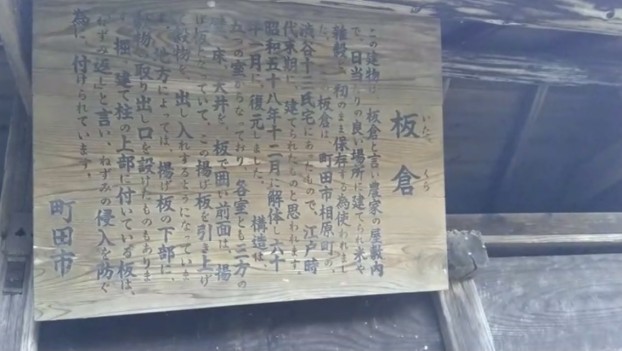 いたくら
板倉
この建物は、板倉と言い農家の屋敷内
で、日当たりの良い場所に建てられ米や
雑穀を籾のまま保存する為使われまし
た。この板倉は、町田市相原町
渋谷十三氏宅にあったもので、江戸時
代末期に、建てられたものと思われます。
昭和五十八年十二月に解体し六十
年十一月に、復元しました。構造は、
の室からなっており、各室とも三方の
床、天井を、板で囲い前面は、揚
げ板となっていて、この揚げ板を引き上げ
穀物を、出し入れするようになっていま
す。地方によっては、揚げ板の下部に、
穀物取り出し口を設けたものもありま
す。棚の建て柱の上部に付いている板は、
ねずみ返しと言い、ねずみの侵入を防ぐ
為に、付けられています。
町田市